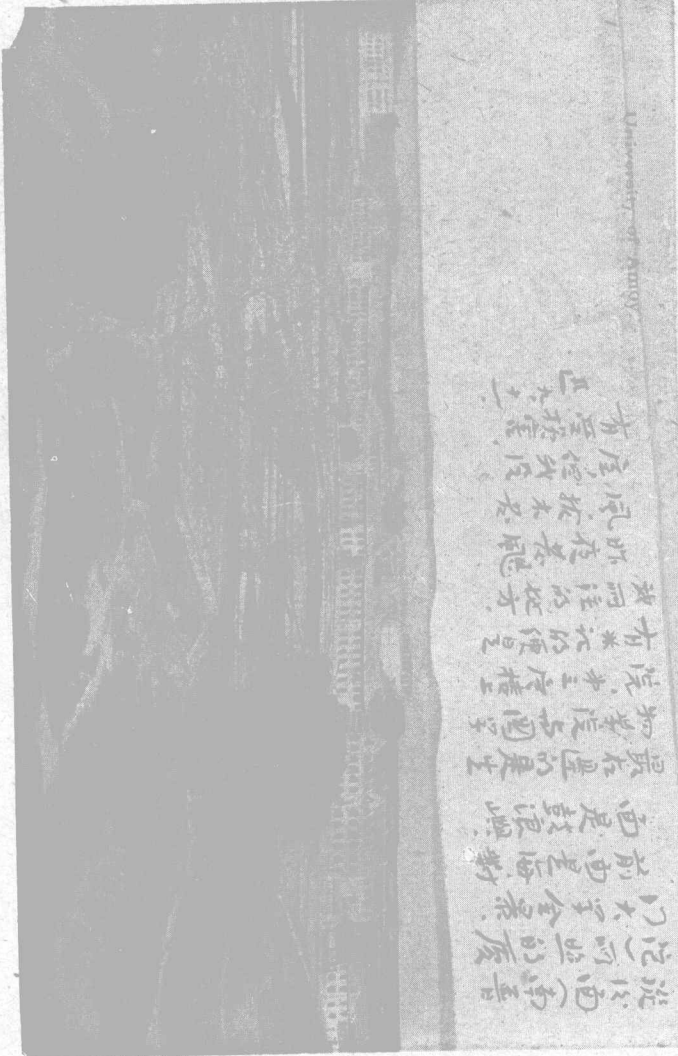 University of Amoy
從後面(南普
陀)所照的廈
门大学全景.
前面是海,对
面是鼓浪嶼.
最右边的是生
物学院与国学
院,第三层楼上
有※记的便是
我所住的地方.
昨夜发飓
風,拔木发
屋,但我没
有受损害.
迅 九,十一.